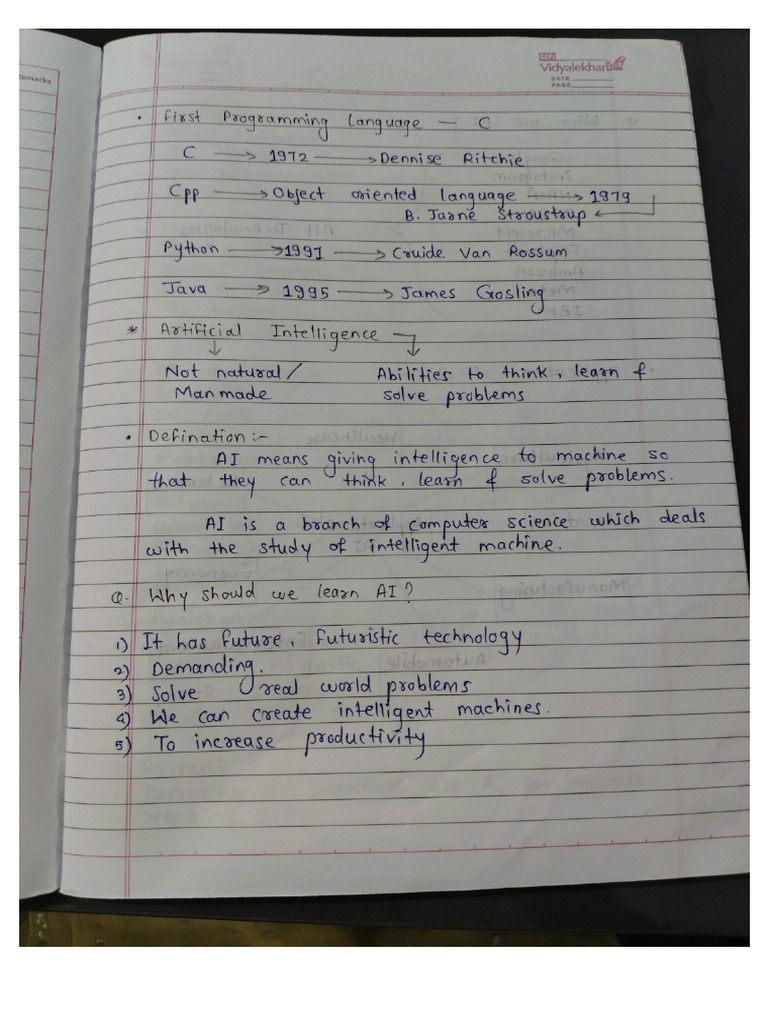 Remarks
Vidyalekhan
DATE
PAGE
• First Programming Language — C
C → 1972 → Dennise Ritchie
Cpp → Object oriented language → 1979
B. Jarne Stroustrup ←
Python → 1991 → Cruide Van Rossum
Java → 1995 → James Gosling
* Artificial Intelligence →
↓ ↓
Not natural / Abilities to think, learn &
Man made solve problems
• Defination :-
AI means giving intelligence to machine so
that they can think, learn & solve problems.
AI is a branch of computer science which deals
with the study of intelligent machine.
Q. Why should we learn AI?
1) It has future, futuristic technology
2) Demanding.
3) Solve real world problems
4) We can create intelligent machines.
5) To increase productivity